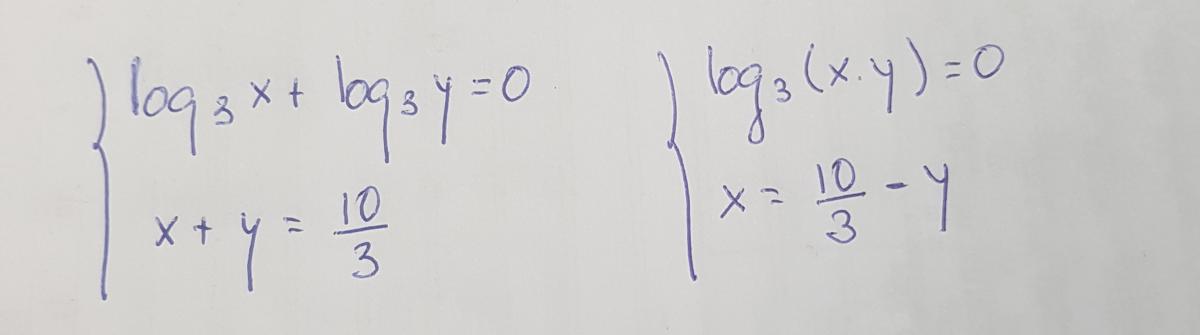 log₃ x + log₃ y = 0
x + y = 10/3
log₃ (x . y) = 0
x = 10/3 - y